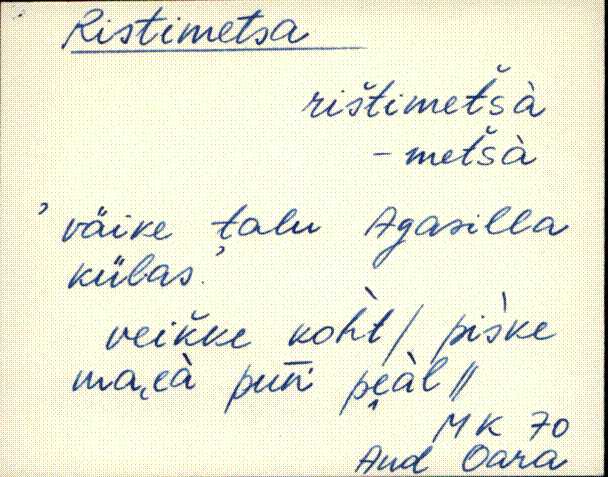 Ristimetsa
rištimet̆šà
- met̆šà
’väike talu Agasilla
külas.’
veik̆ke koh̀t / pis̀ke
peàl //
MK 70
And Oara